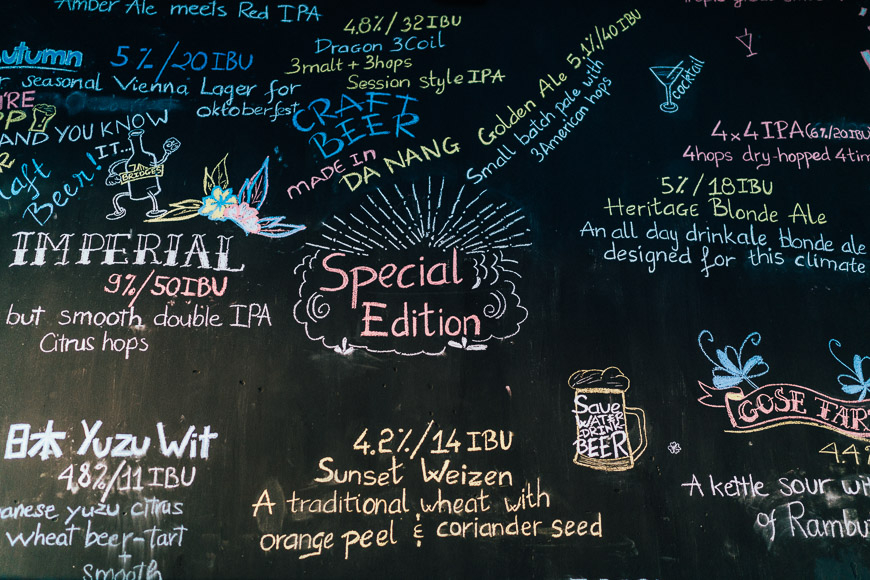 Amber Ale meets Red IPA
4.8%/32 IBU
Dragon 3Coil
3malt + 3hops
Session style IPA
5%/20 IBU
seasonal Vienna Lager for
oktoberfest
AND YOU KNOW
IT...
Beer!
7 BRIDGES
CRAFT
BEER
MADE IN
DA NANG
Golden Ale 5.1%/40 IBU
Small batch pale with
3American hops
cocktail
4x4 IPA (6%/20IBU
4hops dry-hopped 4tim
5%/18IBU
Heritage Blonde Ale
An all day drinkale, blonde ale
designed for this climate
IMPERIAL
9%/50IBU
but smooth double IPA
Citrus hops
Special
Edition
Save
WATER
DRINK
BEER
GOSE TART
4.4%
A kettle sour wit
of Rambu
日本 Yuzu Wit
4.8%/11 IBU
anese yuzu citrus
wheat beer-tart
+
smooth
4.2%/14 IBU
Sunset Weizen
A traditional wheat with
orange peel & coriander seed